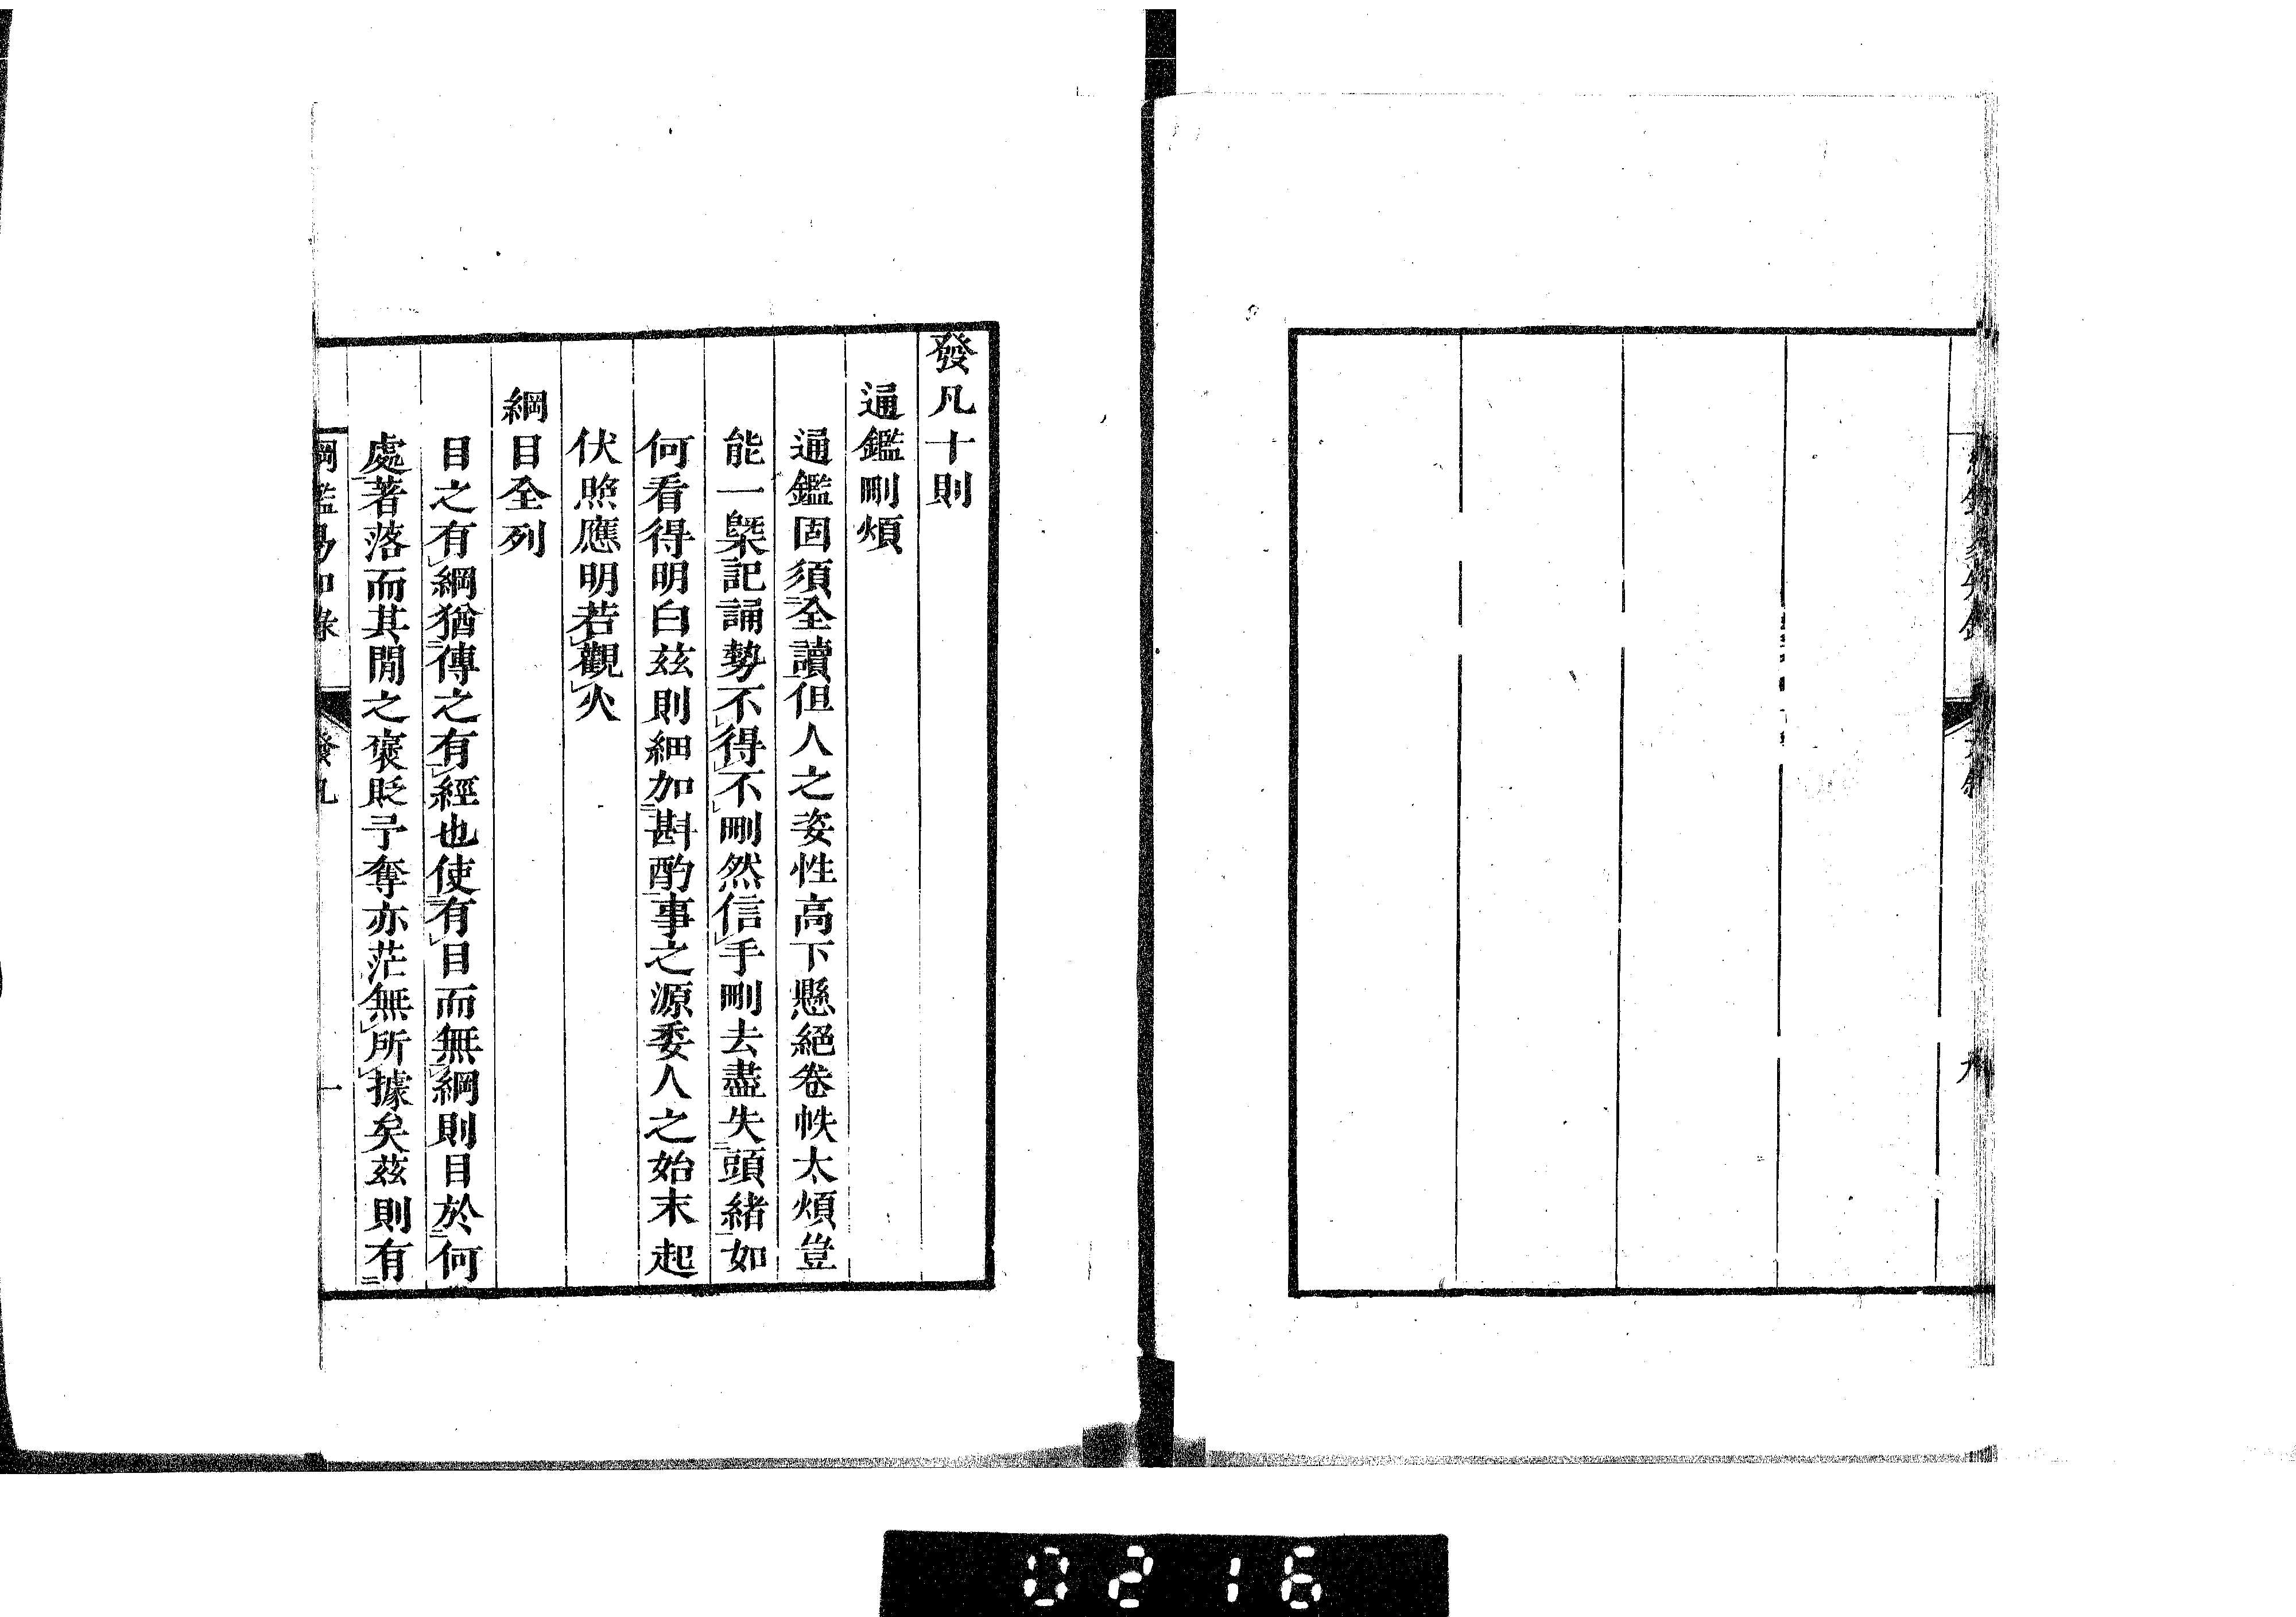 發凡十則
通鑑刪煩
通鑑固須全讀但人之姿性高下懸絕卷帙太煩豈
能一槩記誦勢不得不刪然信手刪去盡失頭緒如
何看得明白玆則細加斟酌事之源委人之始末起
伏照應明若觀火
綱目全列
目之有綱猶傳之有經也使有目而無綱則目於何
處著落而其閒之褒貶予奪亦茫無所據矣茲則有
綱鑑易知錄 發凡 一
0216